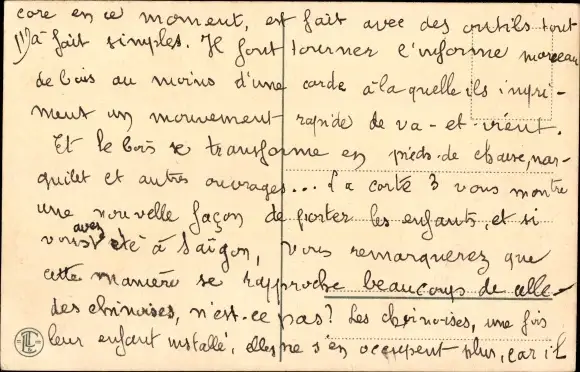 core en ce moment, est fait avec des outils tout
à fait simples. Il font tourner l'informe morceau
de bois au moins d'une corde à la quelle ils impri-
ment un mouvement rapide de va-et-vient.
Et le bois se transforme en pieds de chaise, nar-
guilet et autres ouvrages... La carte 3 vous montre
une nouvelle façon de porter les enfants, et si
vous avez été à Saïgon, vous remarquerez que
cette manière se rapproche beaucoup de celle
des chinoises, n'est-ce pas? Les chinoises, une fois
leur enfant installé, elles ne s'en occupent plus, car il